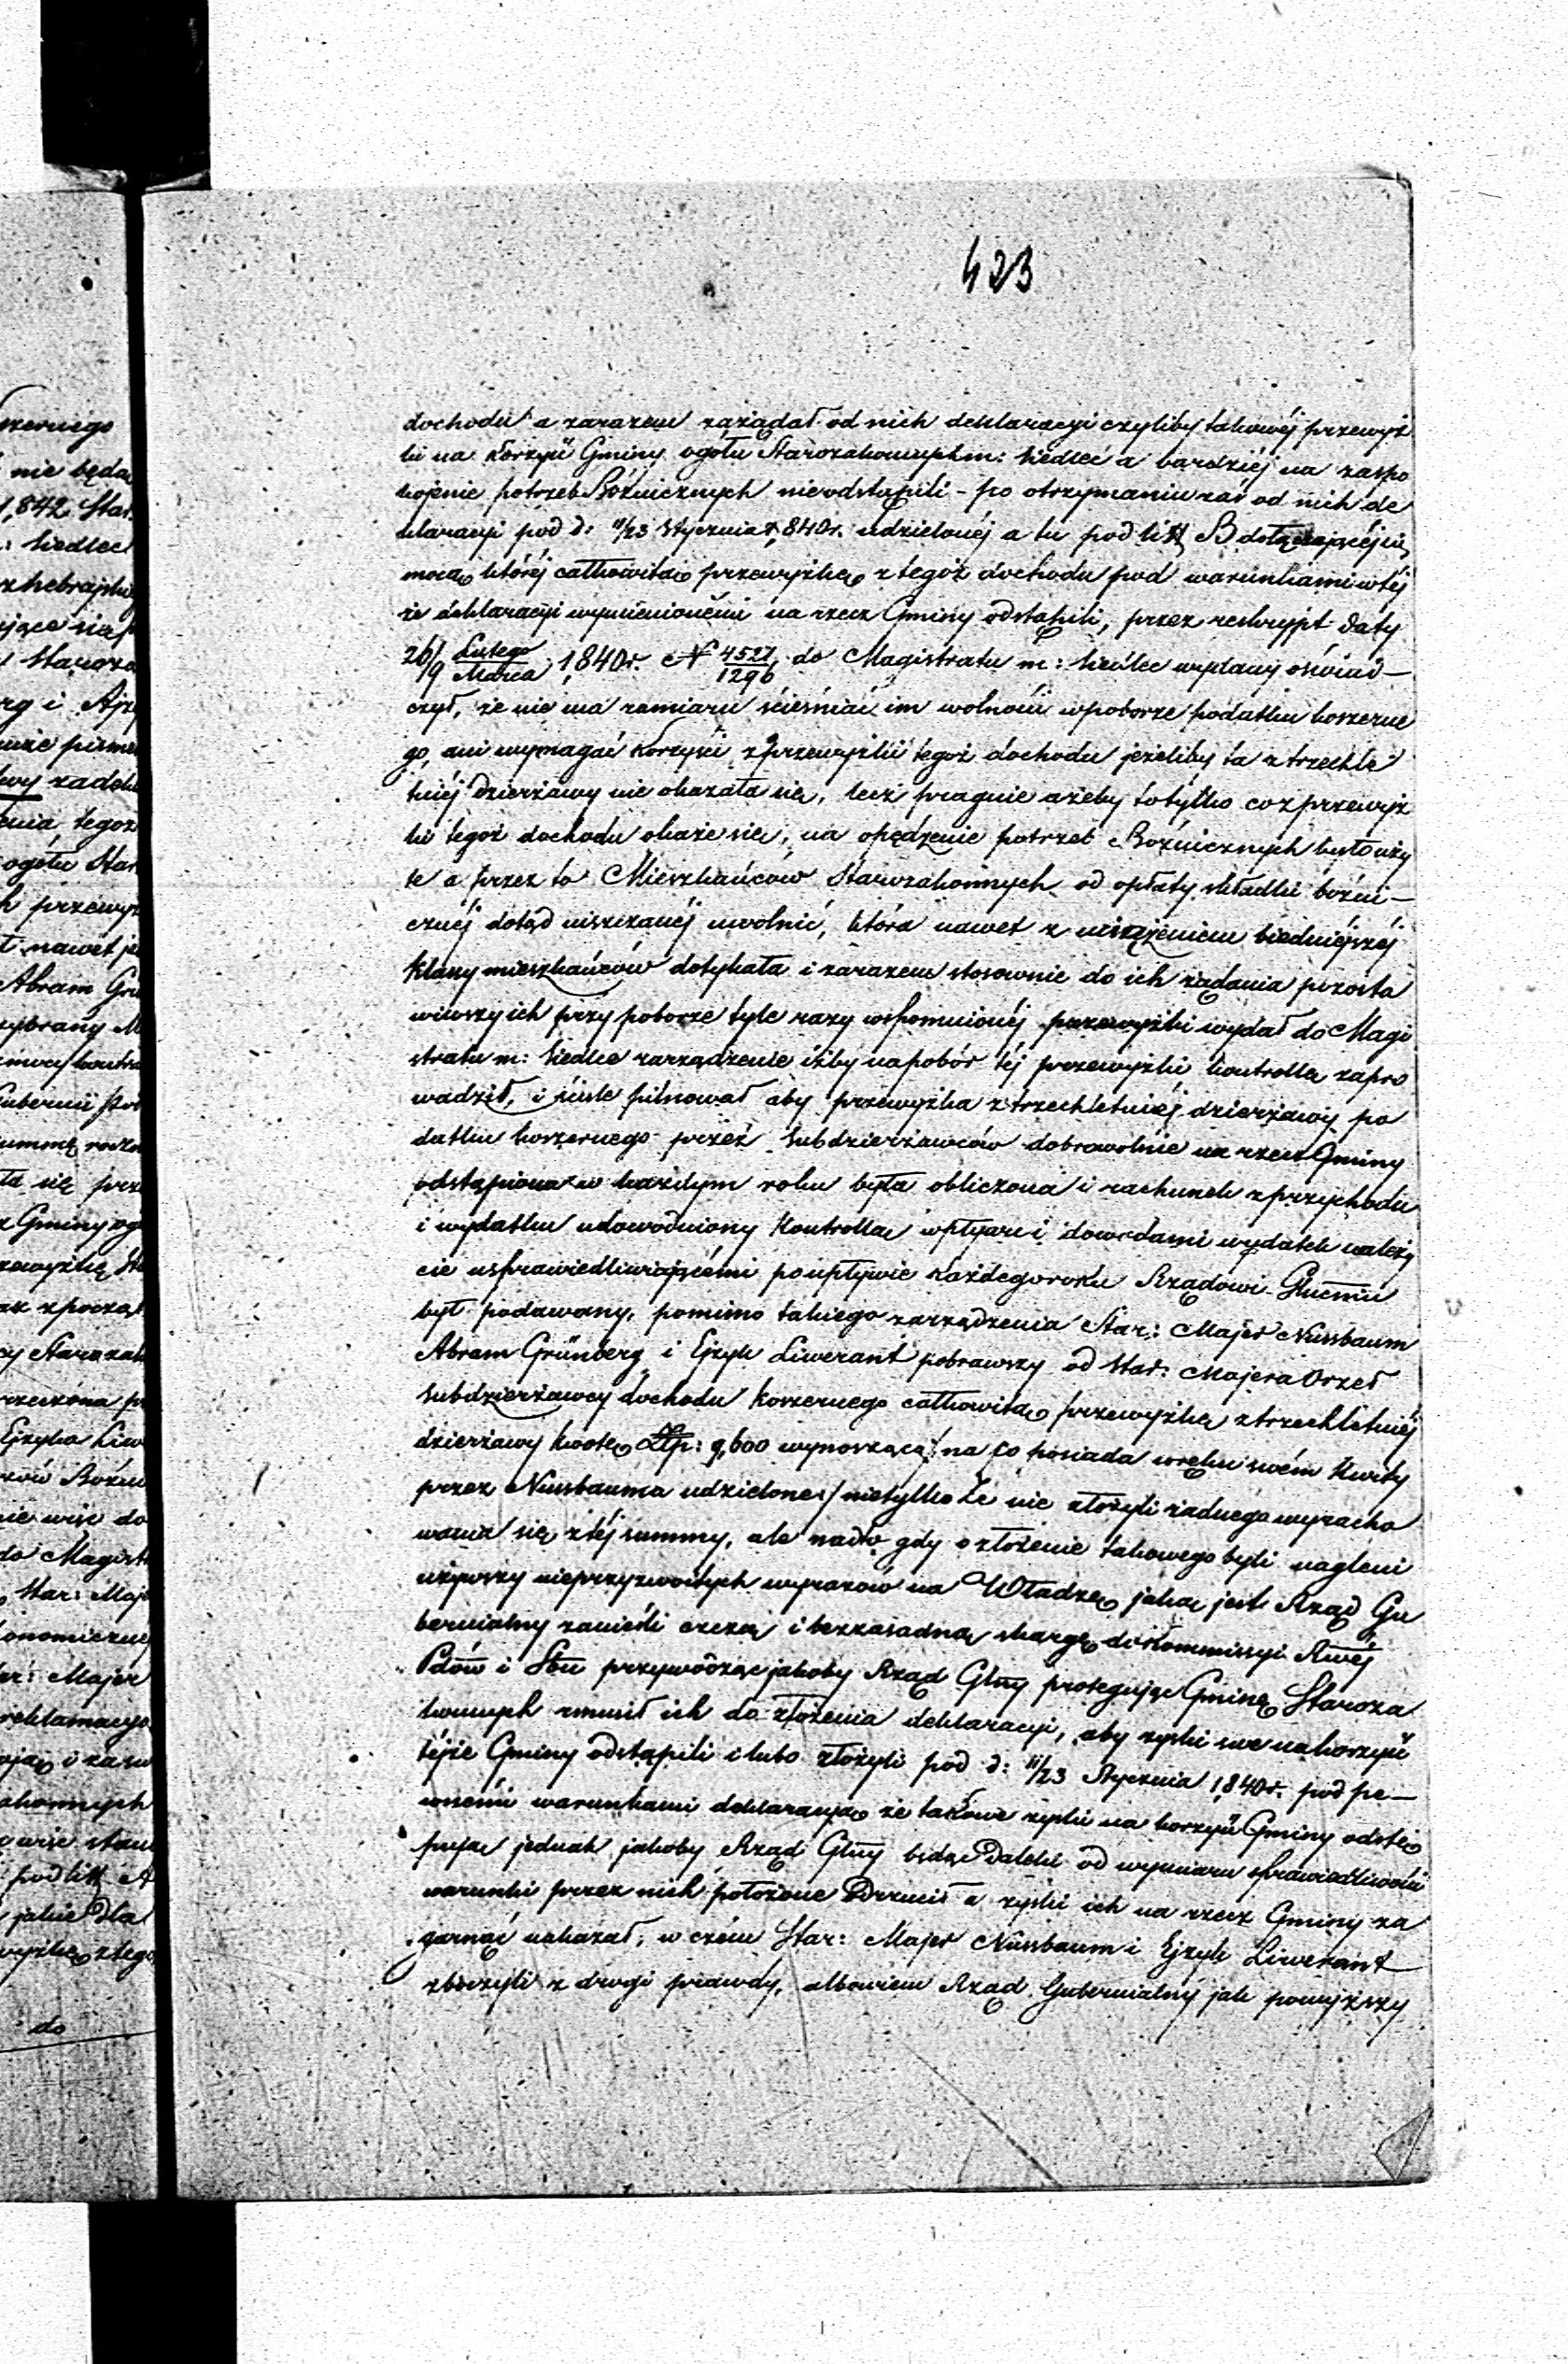 423
dochodu a zarazem zażądał od nich deklaracyi czyliby takowéj przewyż
ki na korzyść Gminy ogółu Starozakonnych m: Siedlec a bardziéj na zaspo
kojenie potrzeb Bóżnicznych nieodstąpili - po otrzymaniu zaś od nich de
klaracyi pod d: 11/23 Stycznia 1,840 r. udzielonéj a tu pod litt B dołączającéj się
mocą któréj całkowitą przewyżkę z tegoż dochodu pod warunkami w téj
że deklaracyi wymienionémi na rzecz Gminy odstąpili, przez reskrypt daty
26/9 Lutego/Marca 1,840 r. N 4527/1296 do Magistratu m: Siedlec wydany oświad—
czył, że nie ma zamiaru ścieśniać im wolności w poborze podatku koszerne
go, ani wymagać korzyści z przewyżki tegoż dochodu jeżeliby ta z trzechle
tniéj dzierżawy nie okazała się, lecz pragnie ażeby to tylko co z przewyż
ki tegoż dochodu okaże się, na opędzenie potrzeb Bóżnicznych było uży
te a przez to Mieszkańców Starozakonnych od opłaty składki bóżni—
cznéj dotąd uiszczanéj uwolnić, która nawet z uciążeniem biedniéjszéj
klassy mieszkańców dotykała i zarazem stosownie do ich żądania pozosta
wiwszy ich przy poborze tyle razy wspomnionéj przewyżki wydał do Magi
stratu m: Siedlec zarządzenie iżby na pobór téj przewyżki kontrollę zapro
wadził, i ściśle pilnował aby przewyżka z trzechletniéj dzierżawy po
datku koszernego przez Subdzierżawców dobrowolnie na rzecz Gminy
odstąpiona w każdym roku była obliczona i rachunek z przychodu
i wydatku udowodniony kontrollą wpływu i dowodami wydatek należy
cie usprawiedliwiającémi po upływie każdego roku Rządowi Glnemu
był podawany, pomimo takiego zarządzenia Star: Majer Nussbaum
Abram Grünberg i Ejzyk Liwerant pobrawszy od Star: Majera Orzeł
Subdzierżawcy dochodu koszernego całkowitą przewyżkę z trzechletniéj
dzierżawy kwotę Złp: 9,600 wynoszącą /na co posiada w ręku swém kwity
przez Nussbauma udzielone/ nietylko że nie złożyli żadnego wyracho
wania się z téj summy, ale nadto gdy o złożenie takowego byli nagleni
używszy nieprzyzwoitych wyrazów na Władzę jaką jest Rząd Gu
bernialny zanieśli czczą i bezzasadną skargę do Kommissyi Rwéj
Pdów i Sbu przywodząc jakoby Rząd Glny protegując Gminę Staroza
konnych zmusił ich do złożenia deklaracyi, aby zyski swe na korzyść
téjże Gminy odstąpili i lubo złożyli pod d: 11/23 Stycznia 1,840 r. pod pe—
wnémi warunkami deklaracyą że takowe zyski na korzyść Gminy odstę
pują jednak jakoby Rząd Glny będąc daleki od wymiaru sprawiedliwości
warunki przez nich położone odrzucił a zyski ich na rzecz Gminy za
garnąć nakazał, w czém Star: Majer Nussbaum i Ejzyk Liwerant
zboczyli z drogi prawdy, albowiem Rząd Gubernialny jak powyższy